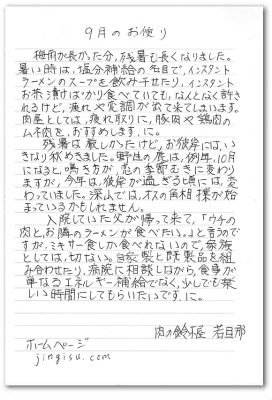 9月のお便り
梅雨が長かった分、残暑も長くなりました。
暑い時は、塩分補給の名目で、インスタント
ラーメンのスープを飲み干せたり、インスタント
お茶漬けばかり食べていても、なんとなく許さ
れるけど、疲れや変調が出て来てしまいます。
肉屋としては、疲れ取りに、豚肉や鶏肉の
ムネ肉を、おすすめします、に。
残暑は厳しかったけど、お彼岸には、い
きなり秋めきました。野生の鹿は、例年、10月
になると、鳴き方が、恋の季節むきに変わり
ますが、今年は、彼岸が過ぎる頃には、変
わっていました。深山では、オスの角相撲が始
まっているかもしれません。
入院していた父が帰って来て、「ウチの
肉と、お隣のラーメンが食べたい。」と言うので
すが、ミキサー食しか食べれないので、家族
としては、切ない。自家製と既製品を組
み合わせたり、病院に相談しながら、食事が
単なるエネルギー補給でなく、少しでも楽
しい時間にしてもらいたいです、に。
肉の鈴木屋 若旦那
ホームページ
jingisu.com